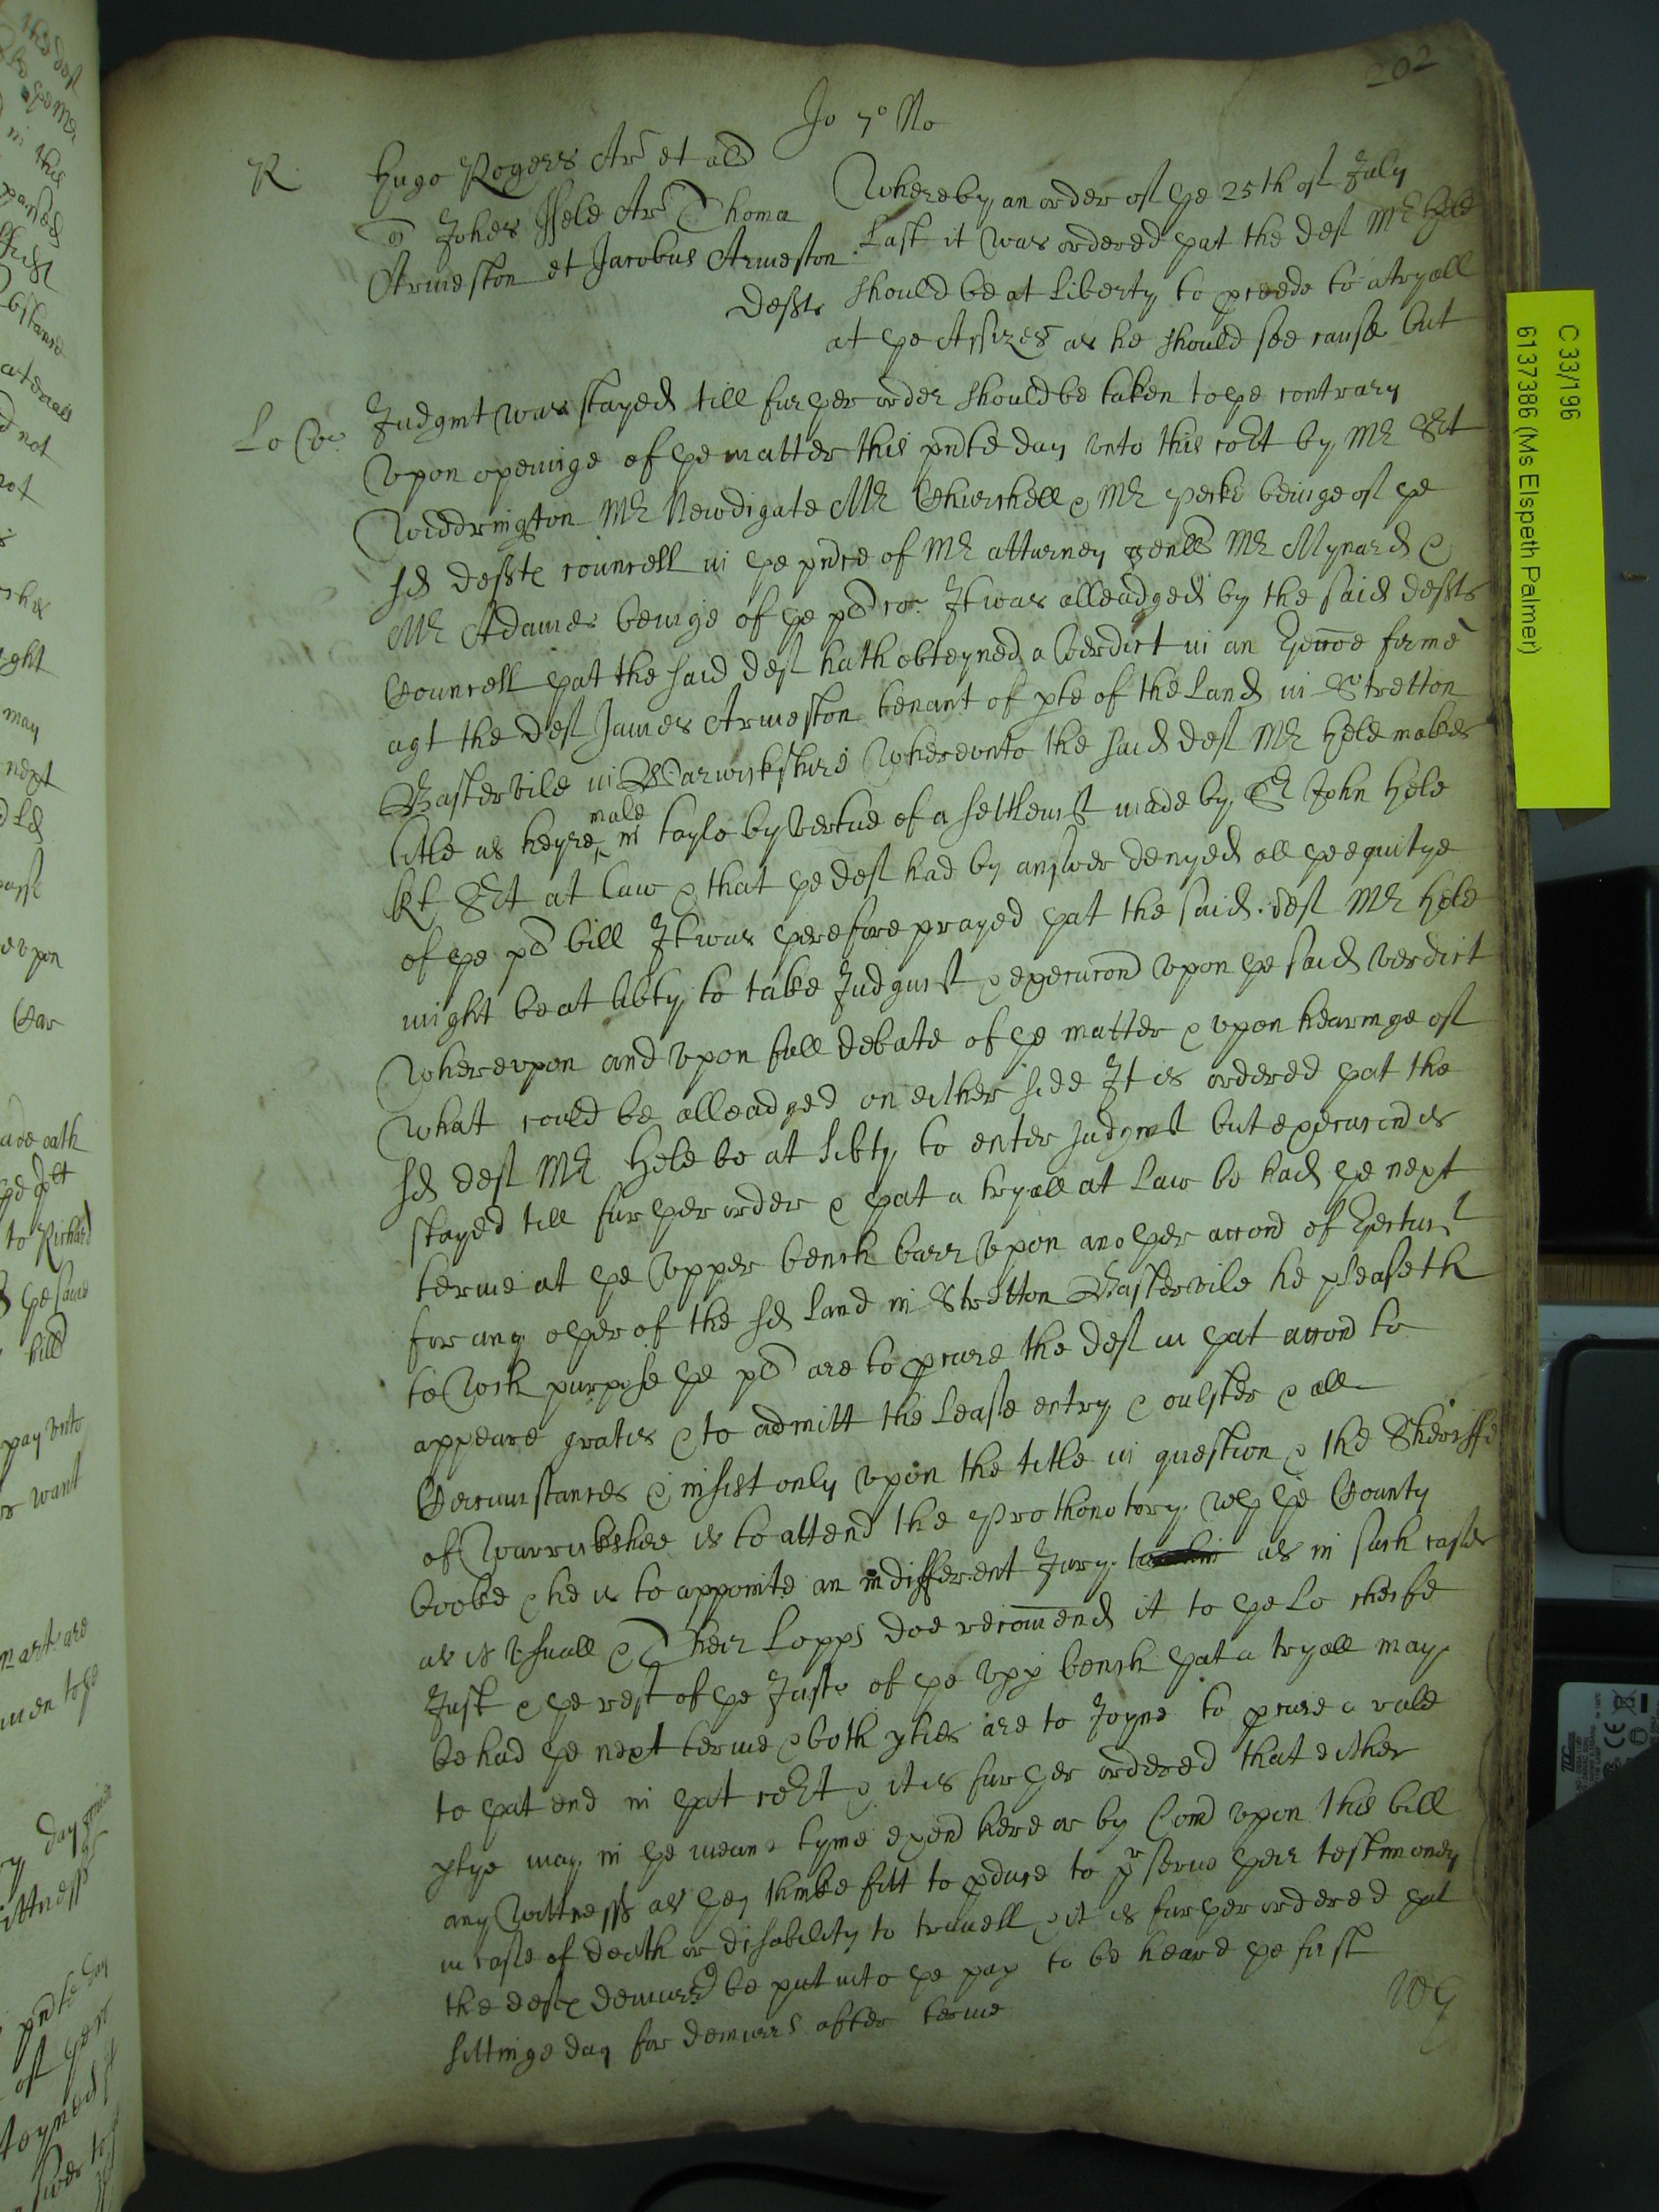 202
Jo 7o No
R. Hugo Rogers Ar et al
Johes Hele Ar Thoma
Armeston et Jacobus Armeston
Defts
Whereby an order of ye 25th of July
Last it was ordered yat the def Mr Hele
should be at Liberty to pceede to a tryall
at ye Assizes as he should see cause but
Lo Co:
Judgmt was stayed till further order should be taken to ye contrary
Upon openinge of ye matter this pnte day unto this cort by Mr Sjt
Widdrington Mr Newdigate Mr Churchell & Mr Pecke beinge of ye
sd defts councell in ye pnce of Mr atturney genll Mr Mynard &
Mr Adames beinge of ye pl co: It was alleadged by the said defts
Councell yat the said def hath obteyned a verdict in an Eieccoe firme
agt the def James Armeston tenant of pte of the Land in Stretton
Baskervile in Warwickshire Whereunto the said def Mr Hele makes
title as heyre male in tayle by vertue of a settlemt made by Sr John Hele
kt Sjt at Law & that ye def had by answer denyed all ye equitye
of ye pl bill It was yerefore prayed yat the said def Mr Hele
might be at libty to take Judgmt & execucon upon ye said verdict
Whereupon and upon full debate of ye matter & upon hearinge of
What could be alleadged on either side It is ordered yat the
sd def Mr Hele be at libty to enter Judgmt but execucon is
stayed till furyer order & yat a tryall at Law be had ye next
terme at ye Upper bench barr upon anoyer accon of Eiectmt
for any oyer of the sd Land in Stretton Baskervile he pleaseth
to Wch purpose ye pl are to pcure the def in yat accon to
appeare gratis & to admitt the Lease entry & oulster & all
Circumstances & insist only upon the title in question & the Sheriffe
of Warrickshire is to attend the Prothonotory wth ye County
booke & he is to appointe an indifferent Jury as in such cases
as is usuall & Their Lopps doe recomend it to ye Lo cheife
Just & ye rest of ye Justs of ye upp bench yat a tryall may
be had ye next terme & both pties are to Joyne to pcure a rule
to yat end in yat cort & it is furyer ordered that either
ptye may in ye meane tyme exem here or by Comd upon this bill
any Wittness as yey thinke fitt to pduce to prserve yeir testimoney
in case of death or disability to travell & it is furyer ordered yat
the defts demurr be put into ye pap to be heard ye first
sittinge day for demurrs after terme
C 33/196
6137386 (Ms Elspeth Palmer)